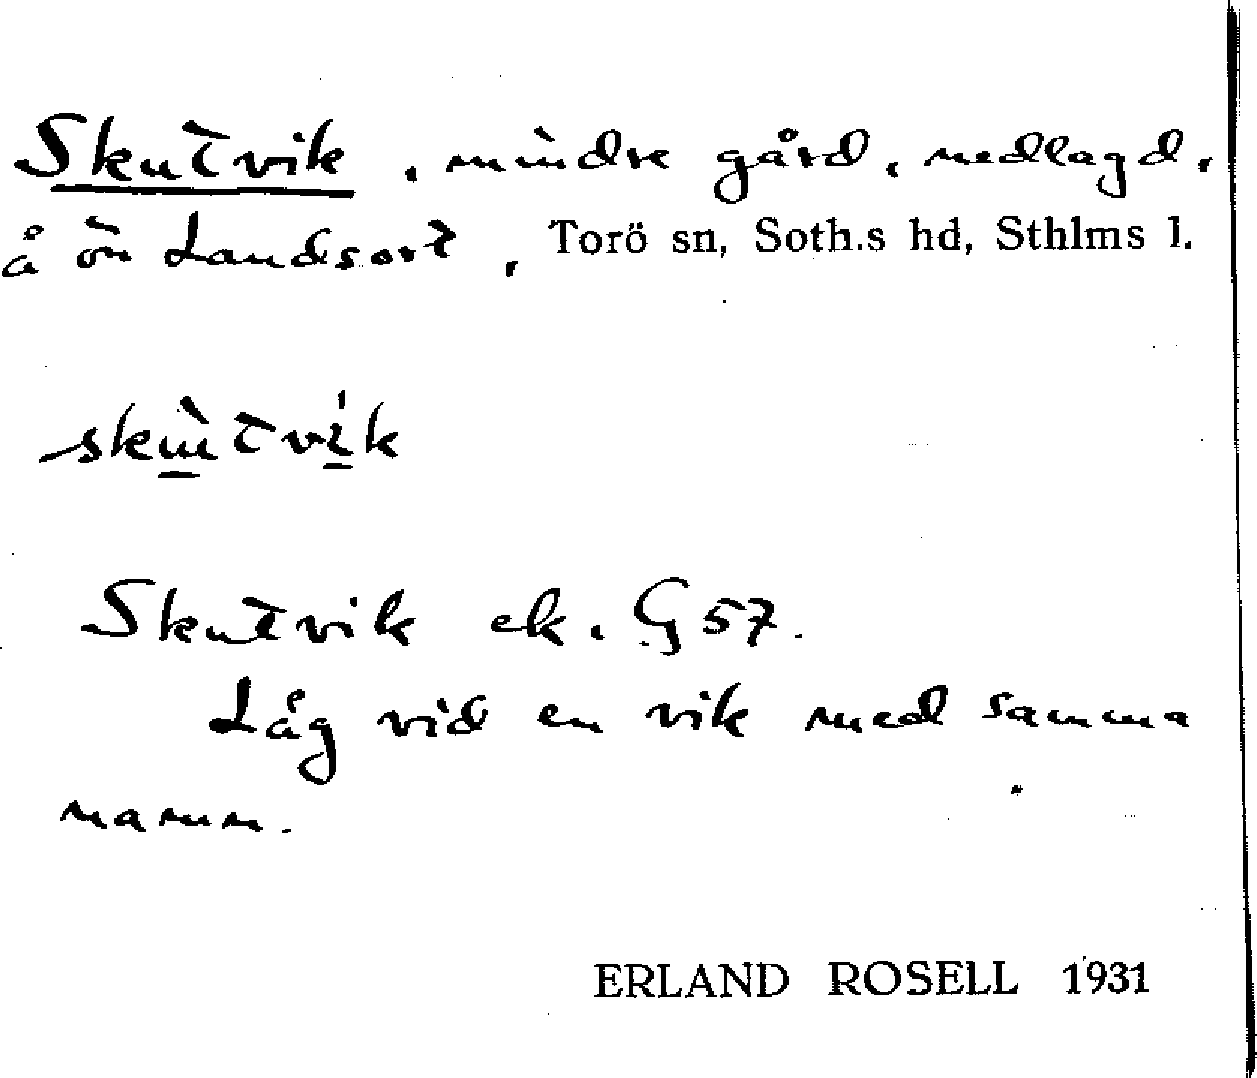 Skutvik, mindre gård, nedlagd,
å ön Landsort, Torö sn, Soth.s hd, Sthlms l.
Skutvik ek. G 57.
Låg vid en vik med samma
namn.
ERLAND ROSELL 1931